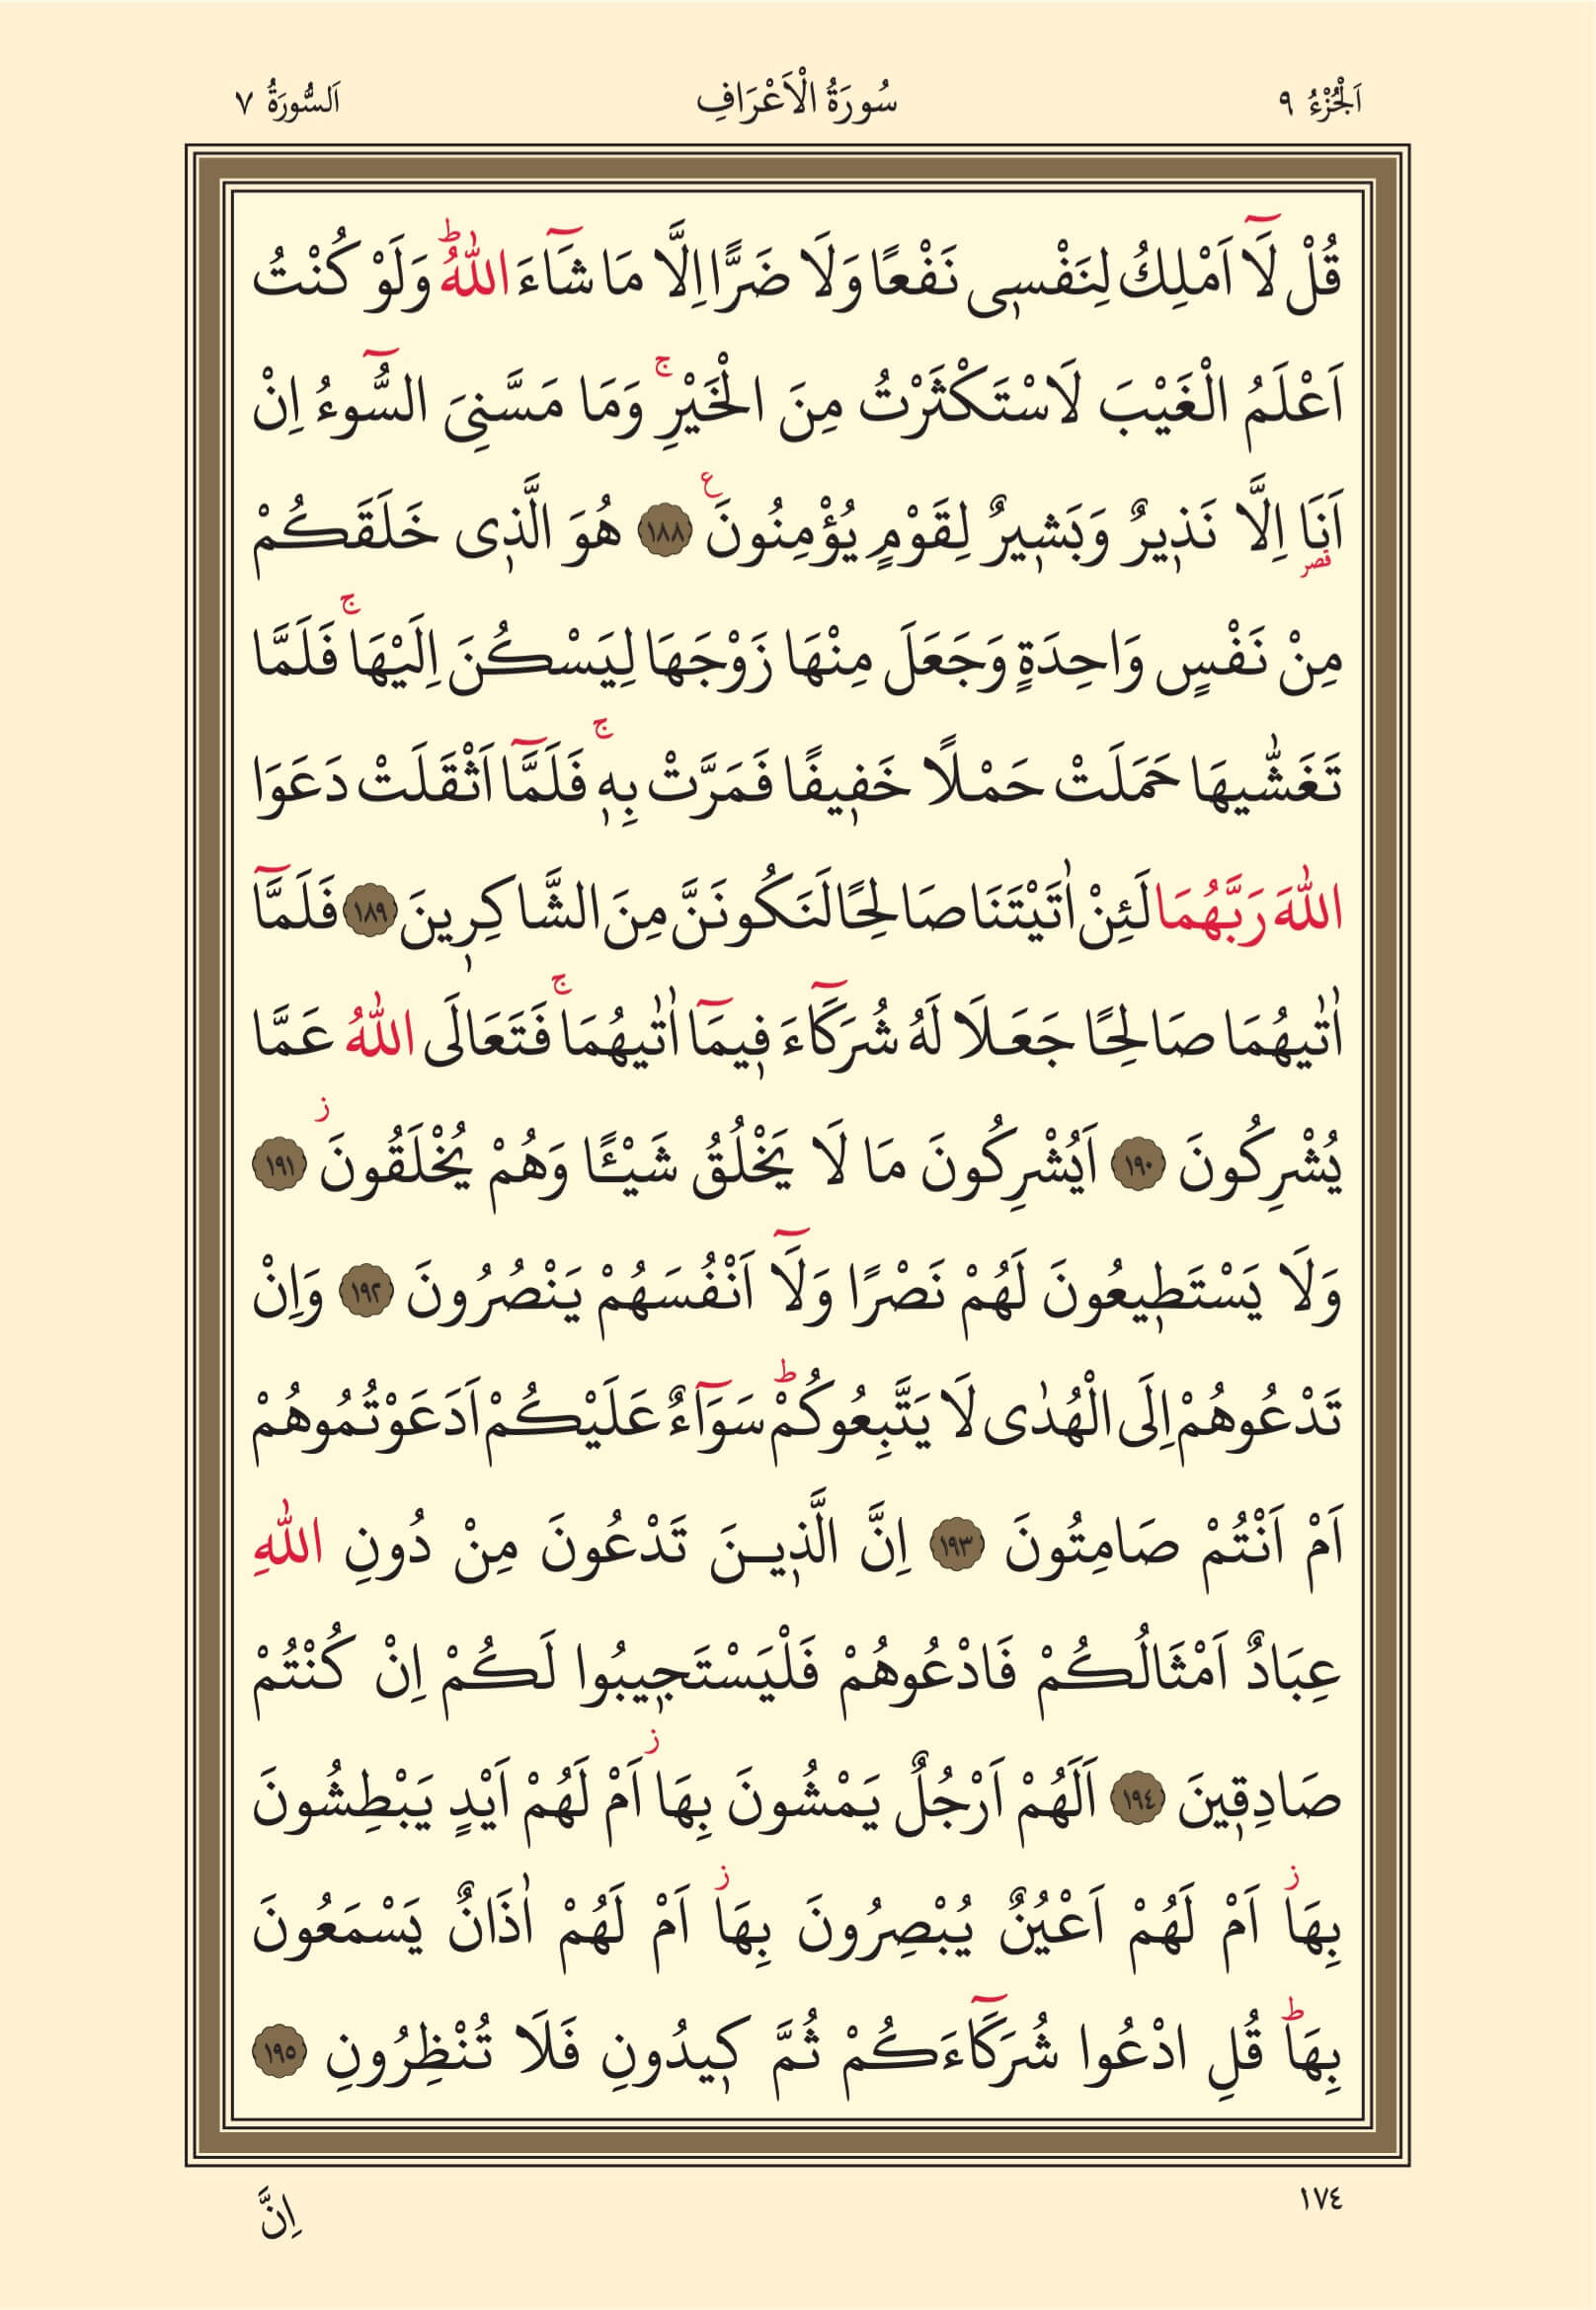 اَلْجُزْءُ ٩ سُورَةُ الْاَعْرَافِ اَلسُّورَةُ ٧
قُلْ لَٓا اَمْلِكُ لِنَفْسٖى نَفْعًا وَلَا ضَرًّا اِلَّا مَا شَٓاءَ اللّٰهُؕ وَلَوْ كُنْتُ
اَعْلَمُ الْغَيْبَ لَاسْتَكْثَرْتُ مِنَ الْخَيْرِۚ وَمَا مَسَّنِىَ السُّٓوءُ اِنْ
اَنَا۬ قصر اِلَّا نَذٖيرٌ وَبَشٖيرٌ لِقَوْمٍ يُؤْمِنُونَ ع ﴿١٨٨﴾ هُوَ الَّذٖى خَلَقَكُمْ
مِنْ نَفْسٍ وَاحِدَةٍ وَجَعَلَ مِنْهَا زَوْجَهَا لِيَسْكُنَ اِلَيْهَاۚ فَلَمَّا
تَغَشّٰيهَا حَمَلَتْ حَمْلًا خَفٖيفًا فَمَرَّتْ بِهٖۚ فَلَمَّٓا اَثْقَلَتْ دَعَوَا
اللّٰهَ رَبَّهُمَا لَئِنْ اٰتَيْتَنَا صَالِحًا لَنَكُونَنَّ مِنَ الشَّاكِرٖينَ ﴿١٨٩﴾ فَلَمَّٓا
اٰتٰيهُمَا صَالِحًا جَعَلَا لَهُ شُرَكَٓاءَ فٖيمَٓا اٰتٰيهُمَاۚ فَتَعَالَى اللّٰهُ عَمَّا
يُشْرِكُونَ ﴿١٩٠﴾ اَيُشْرِكُونَ مَا لَا يَخْلُقُ شَيْـًٔا وَهُمْ يُخْلَقُونَ ز ﴿١٩١﴾
وَلَا يَسْتَطٖيعُونَ لَهُمْ نَصْرًا وَلَٓا اَنْفُسَهُمْ يَنْصُرُونَ ﴿١٩٢﴾ وَاِنْ
تَدْعُوهُمْ اِلَى الْهُدٰى لَا يَتَّبِعُوكُمْؕ سَوَٓاءٌ عَلَيْكُمْ اَدَعَوْتُمُوهُمْ
اَمْ اَنْتُمْ صَامِتُونَ ﴿١٩٣﴾ اِنَّ الَّذٖينَ تَدْعُونَ مِنْ دُونِ اللّٰهِ
عِبَادٌ اَمْثَالُكُمْ فَادْعُوهُمْ فَلْيَسْتَجٖيبُوا لَكُمْ اِنْ كُنْتُمْ
صَادِقٖينَ ﴿١٩٤﴾ اَلَهُمْ اَرْجُلٌ يَمْشُونَ بِهَا ز اَمْ لَهُمْ اَيْدٍ يَبْطِشُونَ
بِهَا ز اَمْ لَهُمْ اَعْيُنٌ يُبْصِرُونَ بِهَا ز اَمْ لَهُمْ اٰذَانٌ يَسْمَعُونَ
بِهَاؕ قُلِ ادْعُوا شُرَكَٓاءَكُمْ ثُمَّ كٖيدُونِ فَلَا تُنْظِرُونِ ﴿١٩٥﴾
١٧٤ اِنَّ